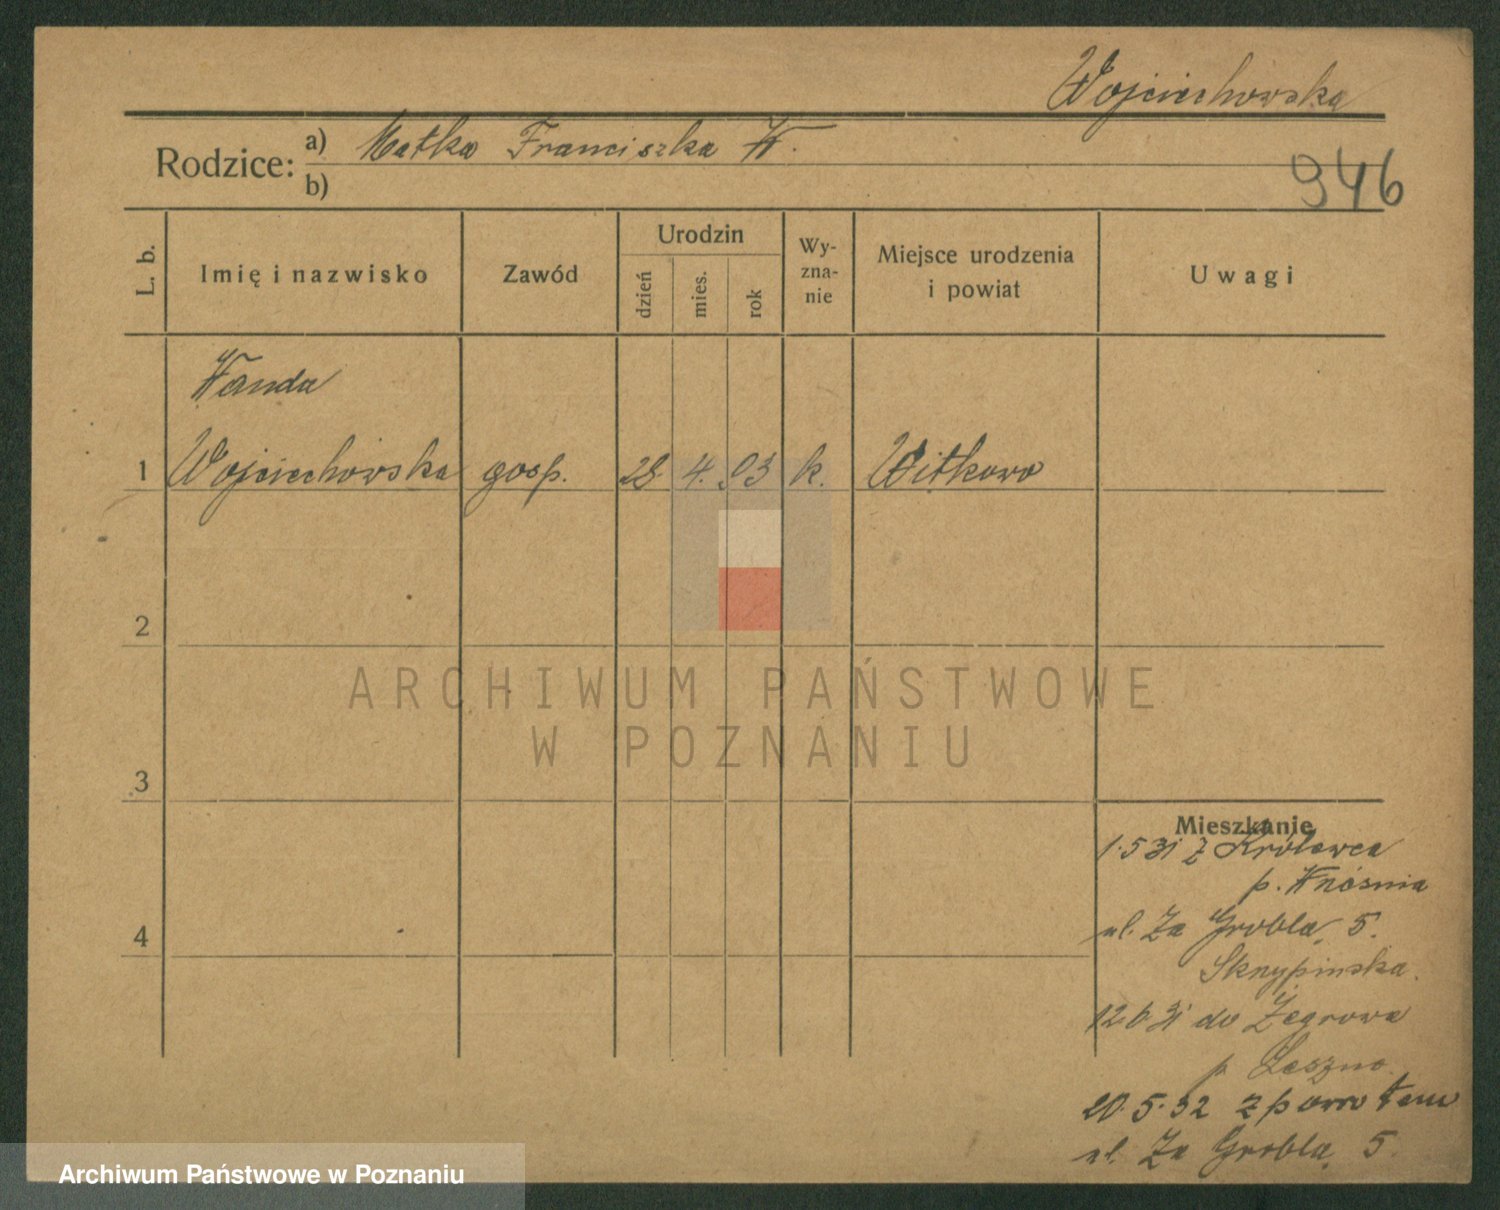 Wojciechowska
Rodzice: a) Matka Franciszka W.
b)
946
L. b.
Imię i nazwisko
Zawód
Urodzin
dzień
mies.
rok
Wy-
zna-
nie
Miejsce urodzenia
i powiat
Uwagi
Wanda
1 Wojciechowska gosp. 28 4. 03 k. Witkowo
2
3
4
ARCHIWUM PAŃSTWOWE
W POZNANIU
Mieszkanie
1.5 31 z Królewca
p.
ul. Za Groblą 5.
12 6 31 do Żegrowa
p. Leszno
20.5.32 z powrotem
ul. Za Groblą 5.
Archiwum Państwowe w Poznaniu